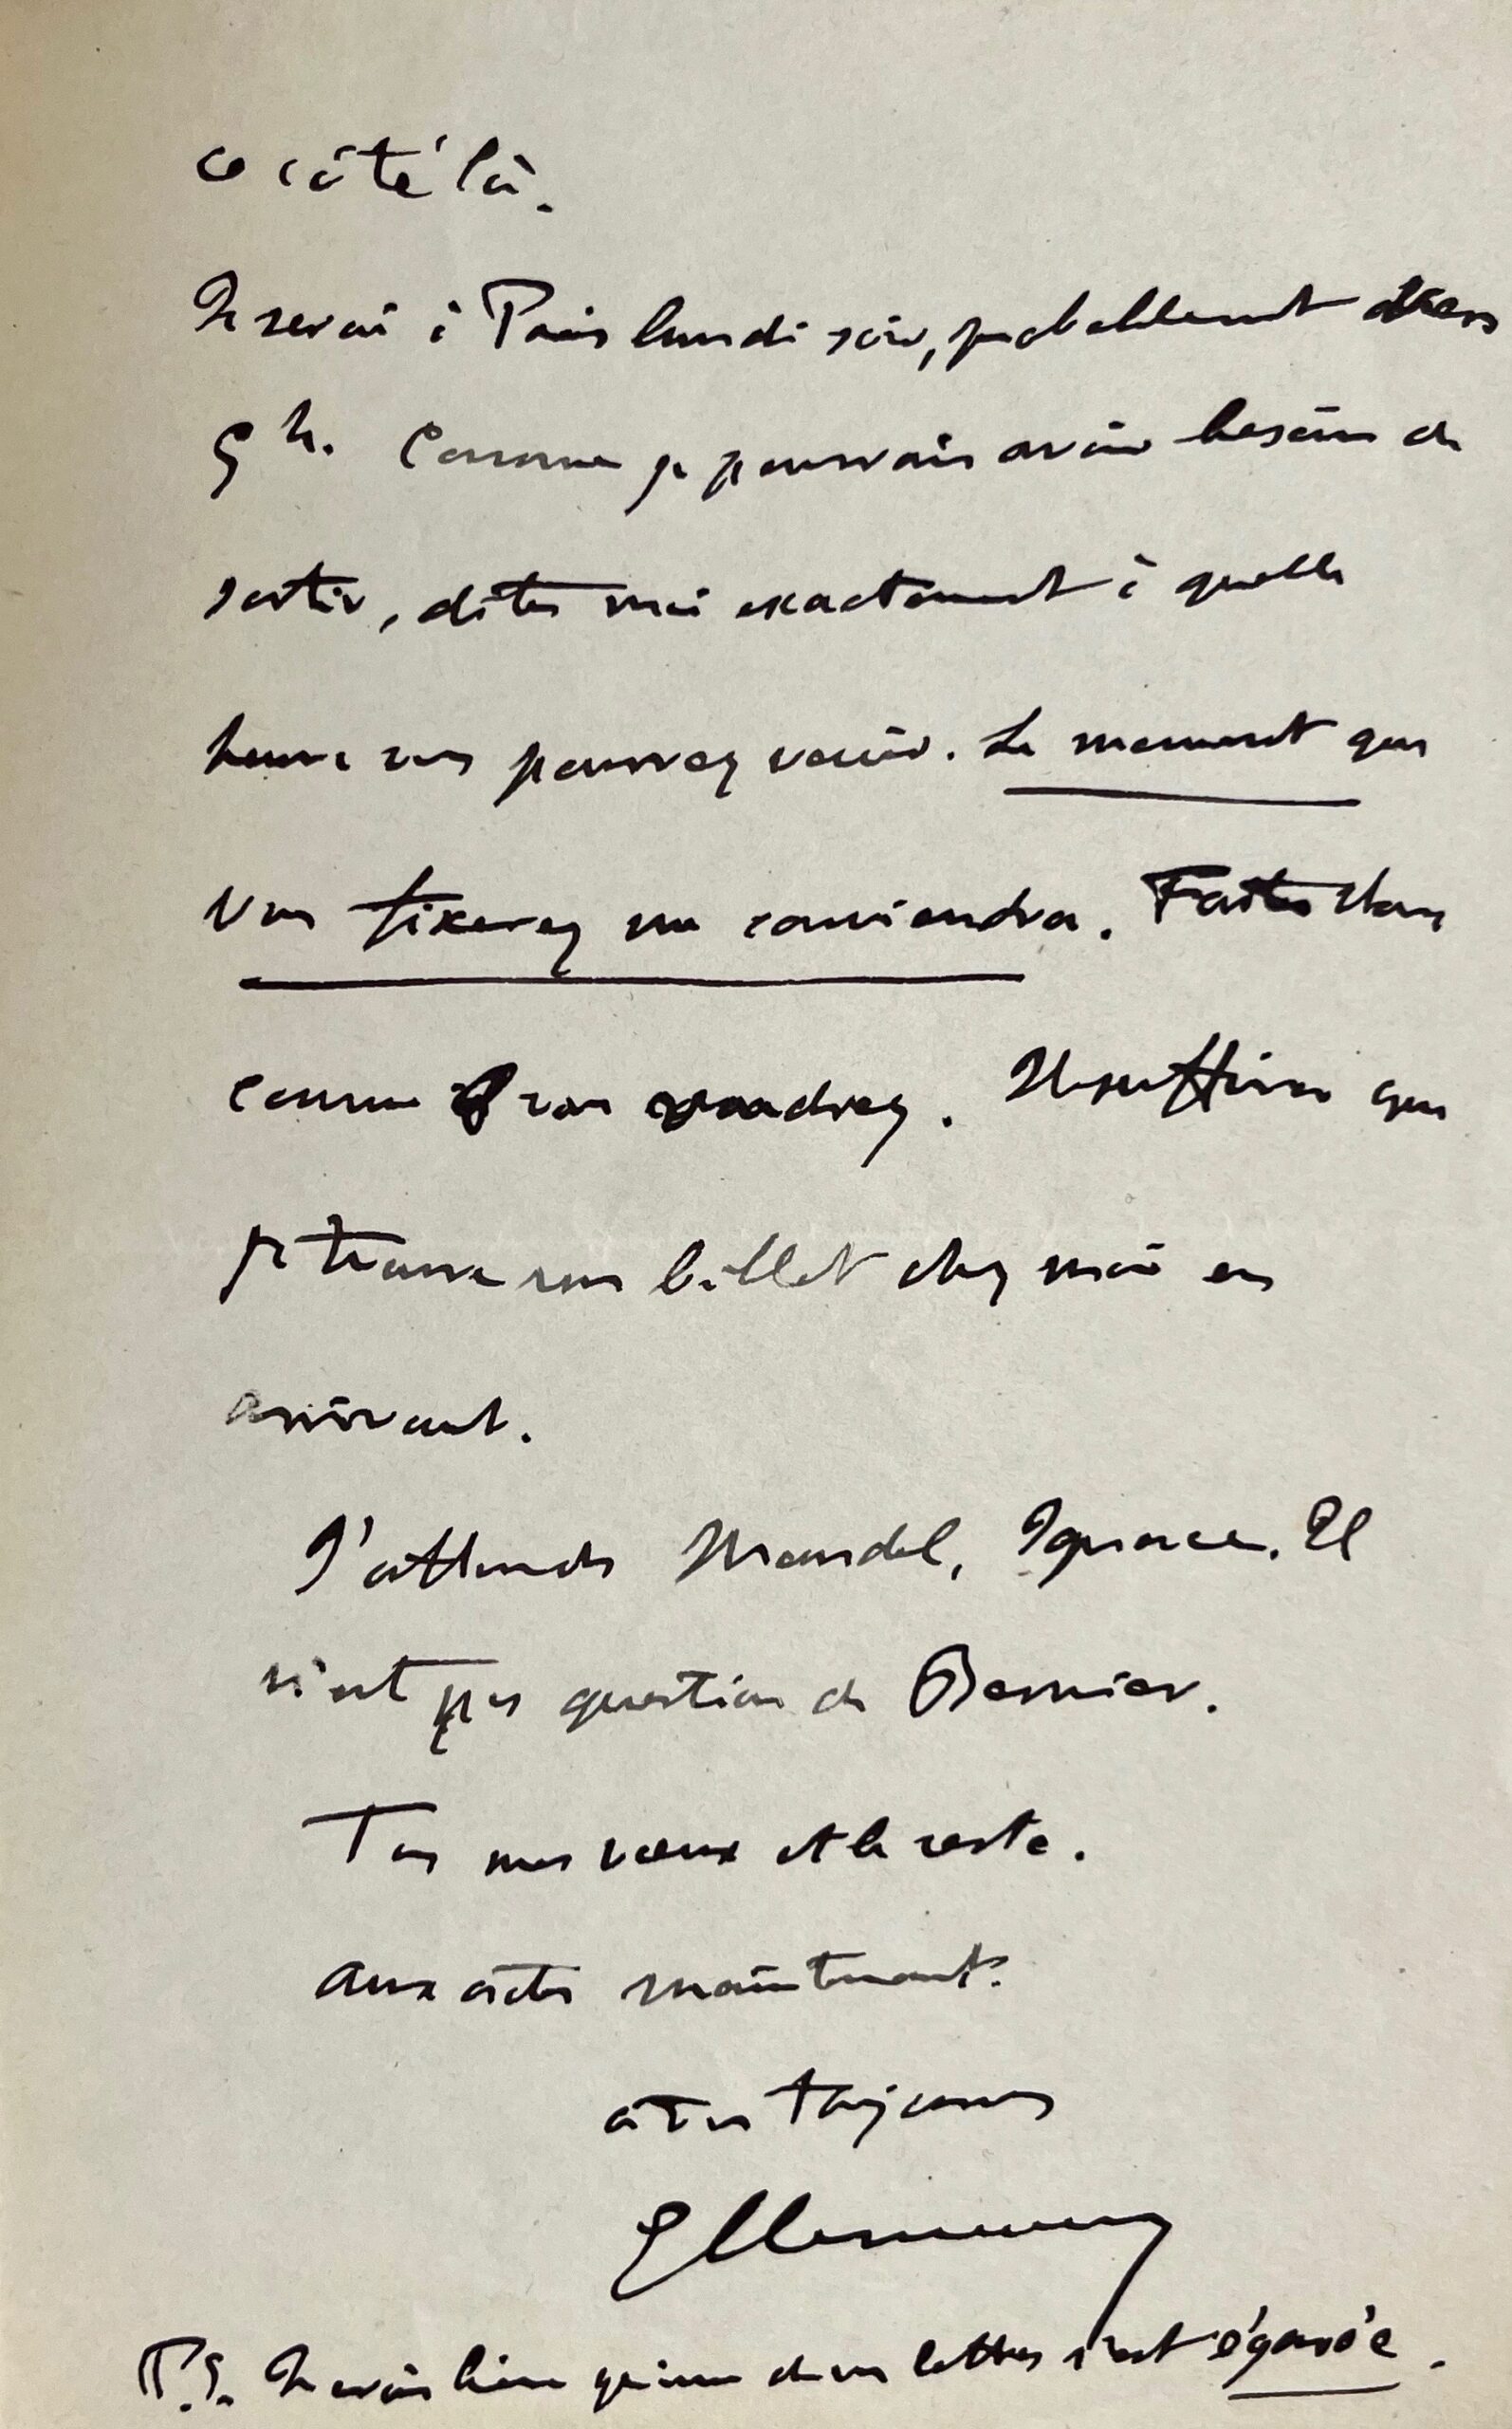 ce côté là.
Je serai à Paris lundi soir, probablement vers
5 h. Comme je pourrais avoir besoin de
sortir, dites moi exactement à quelle
heure vous pourrez venir. Le moment que
vous fixerez me conviendra. Faites donc
comme vous voudrez. Il suffira que
je trouve un billet chez moi en
arrivant.
J'attends Mandel, Ignace. Il
n'est pas question de Bernier.
Tous mes vœux et le reste.
Aux actes maintenant.
à vous toujours
GClemenceau
P.S. Je crois bien qu'une de vos lettres s'est égarée.